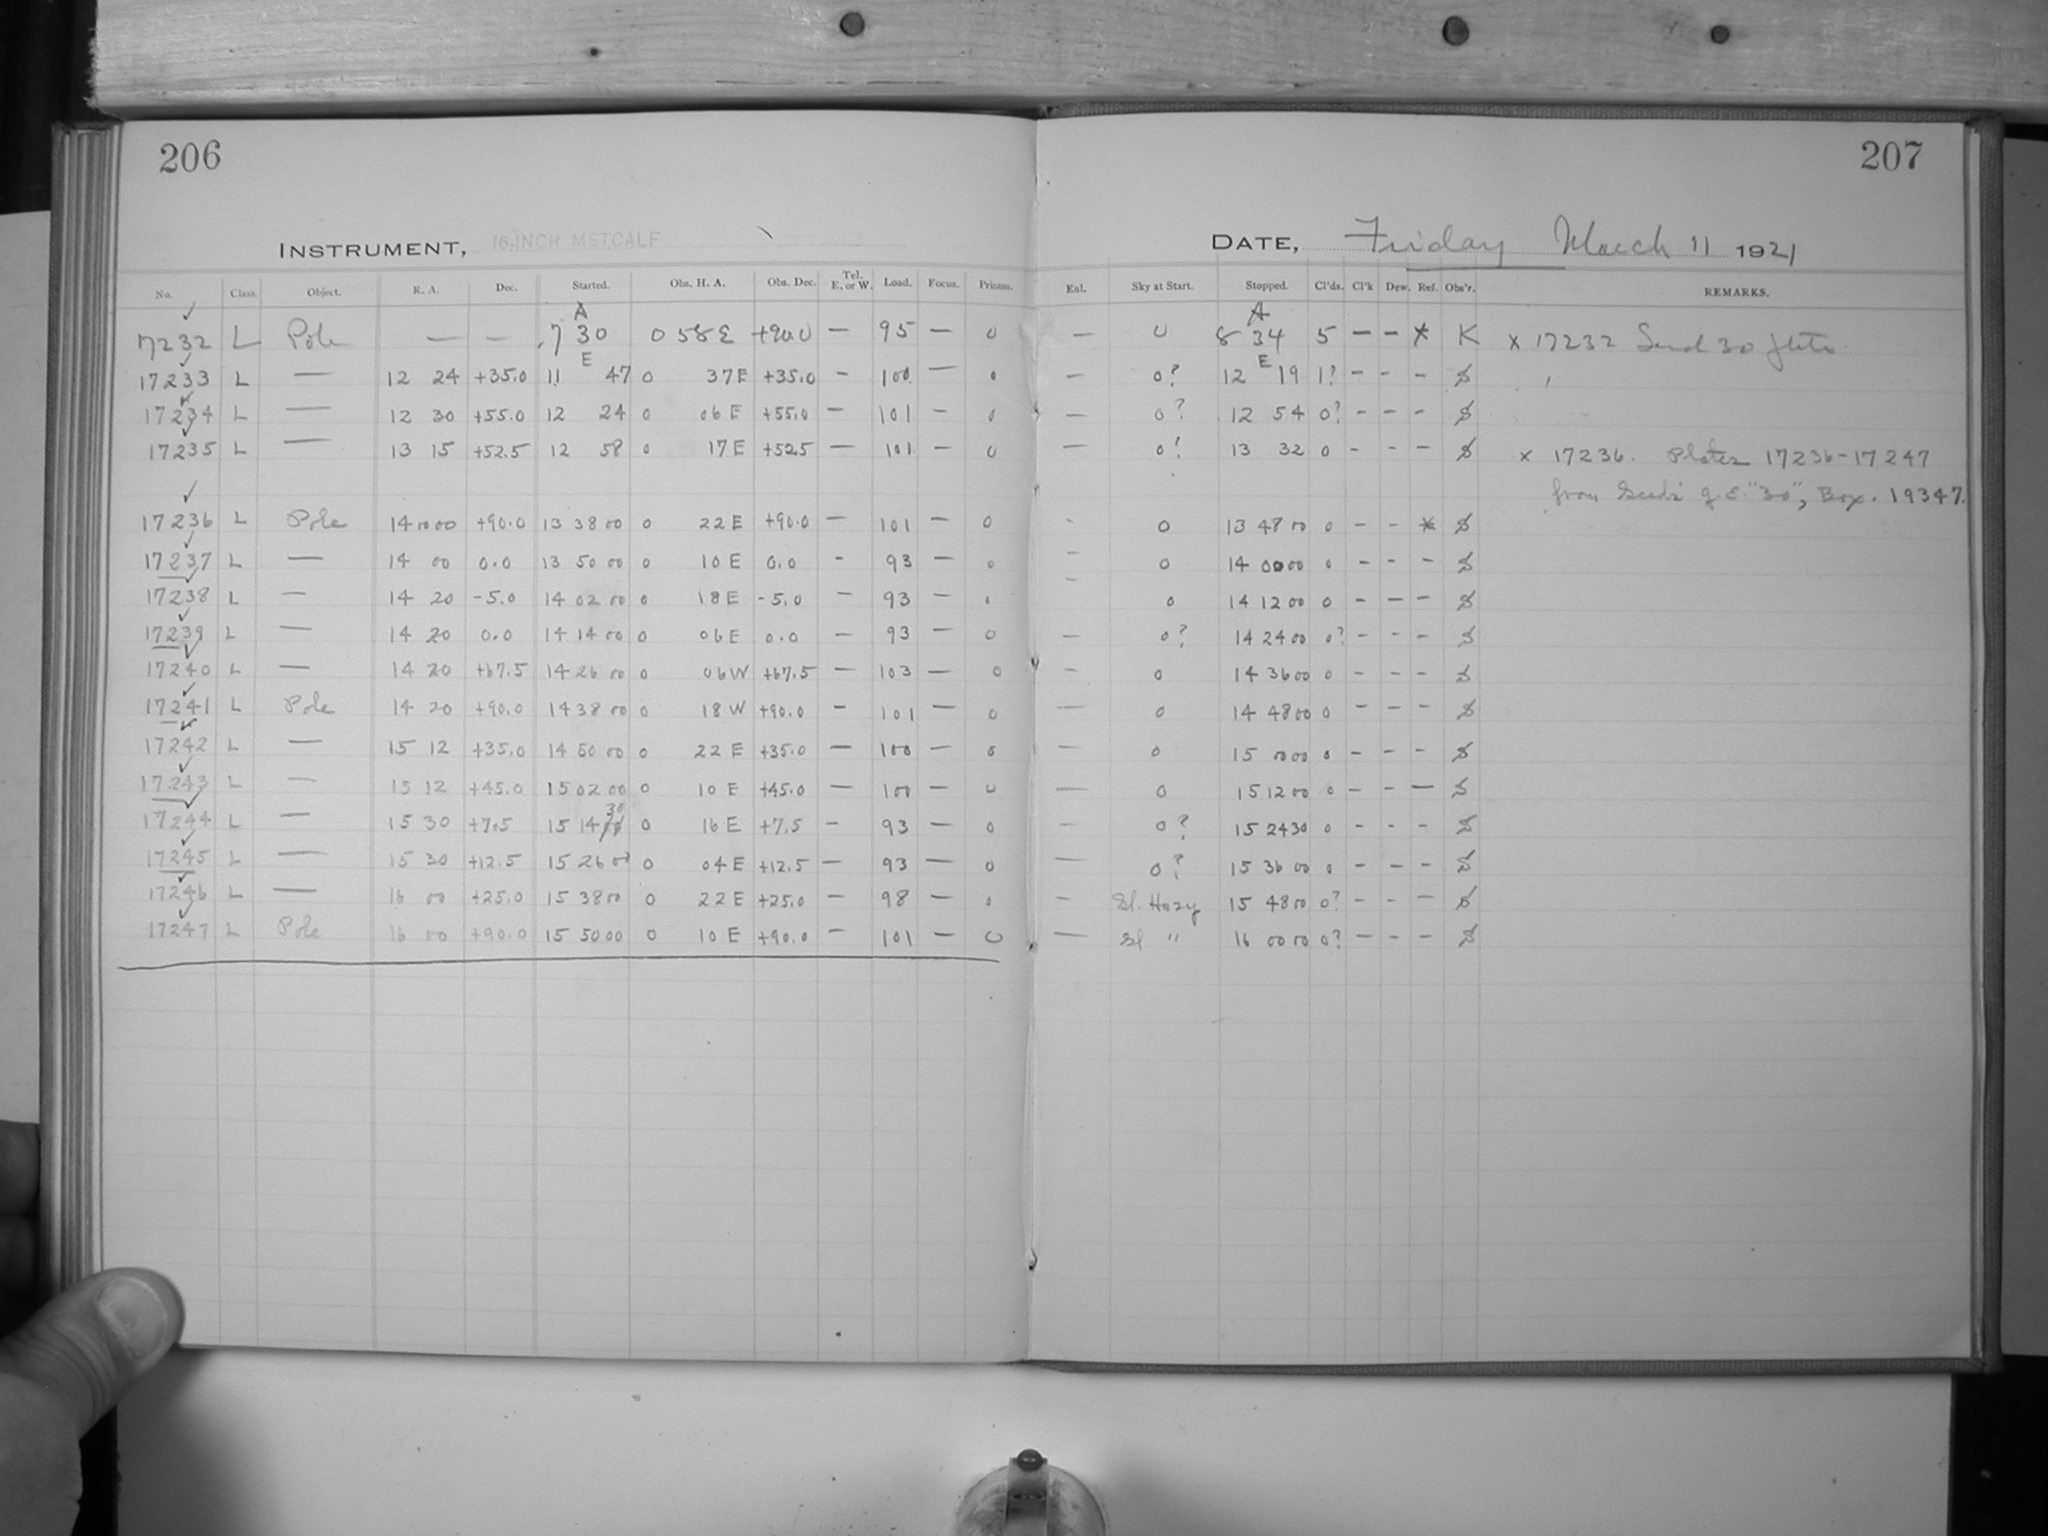 206
207
INSTRUMENT, 16-INCH METCALF
DATE, Friday March 11 1921
No. Class. Object. R. A. Dec. Started. Obs. H. A. Obs. Dec. Tel. E. or W. Load. Focus. Prisms. Enl. Sky at Start. Stopped. Cl'ds. Cl'k Dew. Ref. Obs'r. REMARKS.
A A
17232 L Pole — — 7 30 0 58 E +90.0 — 95 — 0 — 0 8 34 5 — — * K x 17232 Seed 30
E E
17233 L — 12 24 +35.0 11 47 0 37 E +35.0 — 100 — 0 — 0? 12 19 1? - - - S
17234 L — 12 30 +55.0 12 24 0 06 E +55.0 — 101 — 0 — 0? 12 54 0? - - - S
17235 L — 13 15 +52.5 12 58 0 17 E +52.5 — 101 — 0 — 0! 13 32 0 - - - S x 17236. Plates 17236-17247
from Seeds' g.E. "30", Box. 19347.
17236 L Pole 14 00 00 +90.0 13 38 00 0 22 E +90.0 — 101 — 0 - 0 13 48 00 0 - - * S
17237 L — 14 00 0.0 13 50 00 0 10 E 0.0 - 93 — 0 - 0 14 00 00 0 - - - S
17238 L — 14 20 -5.0 14 02 00 0 18 E -5.0 — 93 — 0 - 0 14 12 00 0 - - - S
17239 L — 14 20 0.0 14 14 00 0 06 E 0.0 — 93 — 0 — 0? 14 24 00 0? - - - S
17240 L — 14 20 +67.5 14 26 00 0 06 W +67.5 — 103 — 0 — 0 14 36 00 0 - - - S
17241 L Pole 14 20 +90.0 14 38 00 0 18 W +90.0 - 101 — 0 — 0 14 48 00 0 - - - S
17242 L — 15 12 +35.0 14 50 00 0 22 E +35.0 — 100 — 0 — 0 15 00 00 0 - - - S
17243 L — 15 12 +45.0 15 02 00 0 10 E +45.0 — 100 — 0 — 0 15 12 00 0 - - — S
17244 L — 15 30 +7.5 15 14 30 0 16 E +7.5 - 93 — 0 — 0? 15 24 30 0 - - - S
17245 L — 15 30 +12.5 15 26 00 0 04 E +12.5 — 93 — 0 — 0? 15 36 00 0 - - - S
17246 L — 16 00 +25.0 15 38 00 0 22 E +25.0 — 98 — 0 — Sl. Hazy 15 48 00 0? - - - S
17247 L Pole 16 00 +90.0 15 50 00 0 10 E +90.0 — 101 — 0 — Sl " 16 00 00 0? - - - S